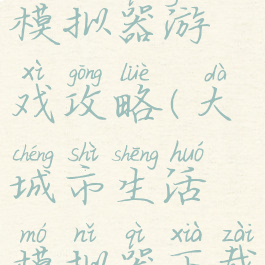 模拟器游
xì gōng lüè dà
戏攻略(大
chéng shì shēng huó
城市生活
mó nǐ qì xià zài
模拟器下载